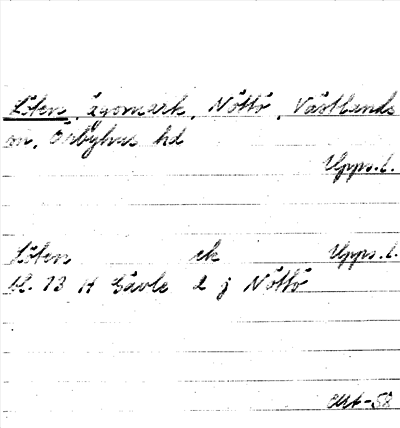 Löten, ägomark, Nöttö, Västlands
sn, Örbyhus hd
Upps.l.
Löten ek Upps.l.
bl. 73 H Gävle 2 j Nöttö
-58